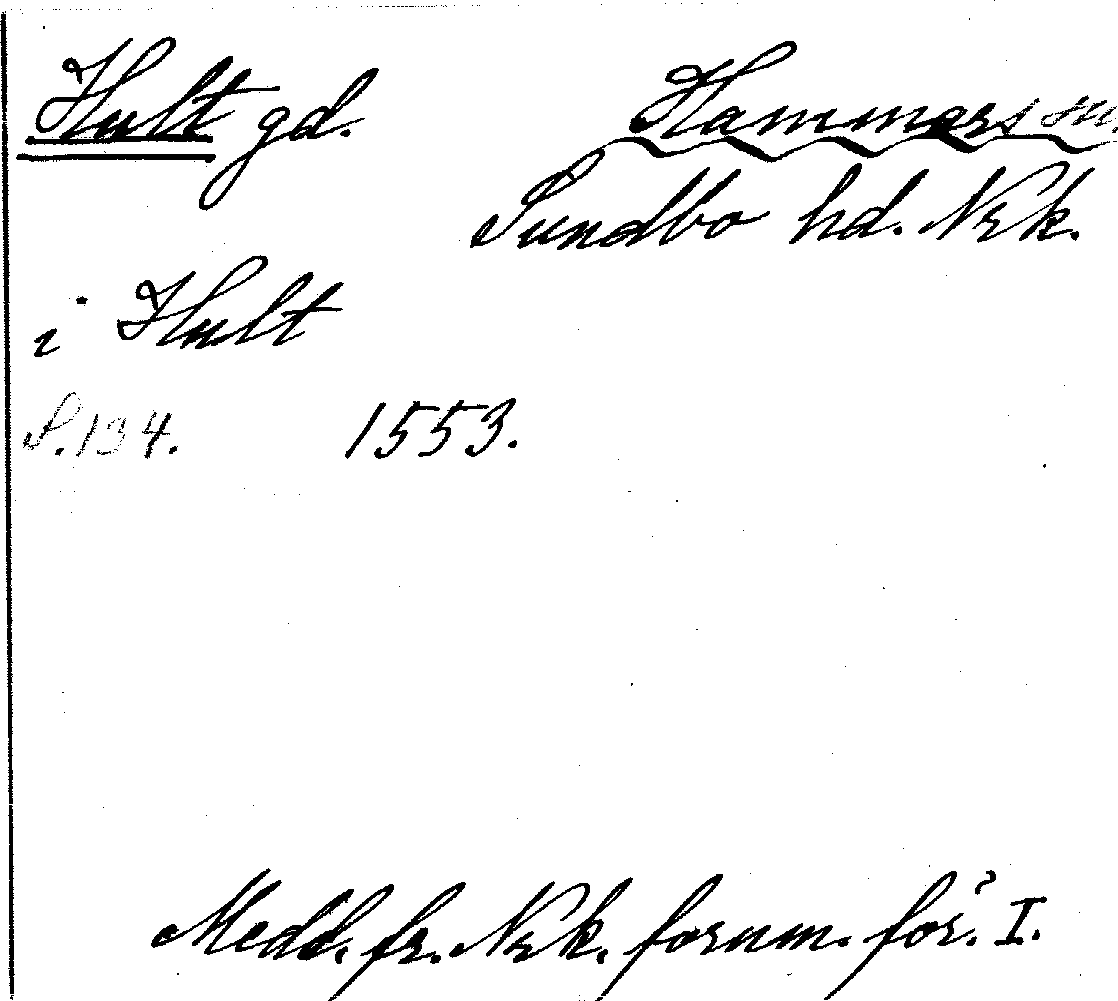 Hult gd. Hammars sn.
Sundbo hd. Nrk.
i Hult
S. 134. 1553.
Medd. fr. Nrk. fornm. för. I.